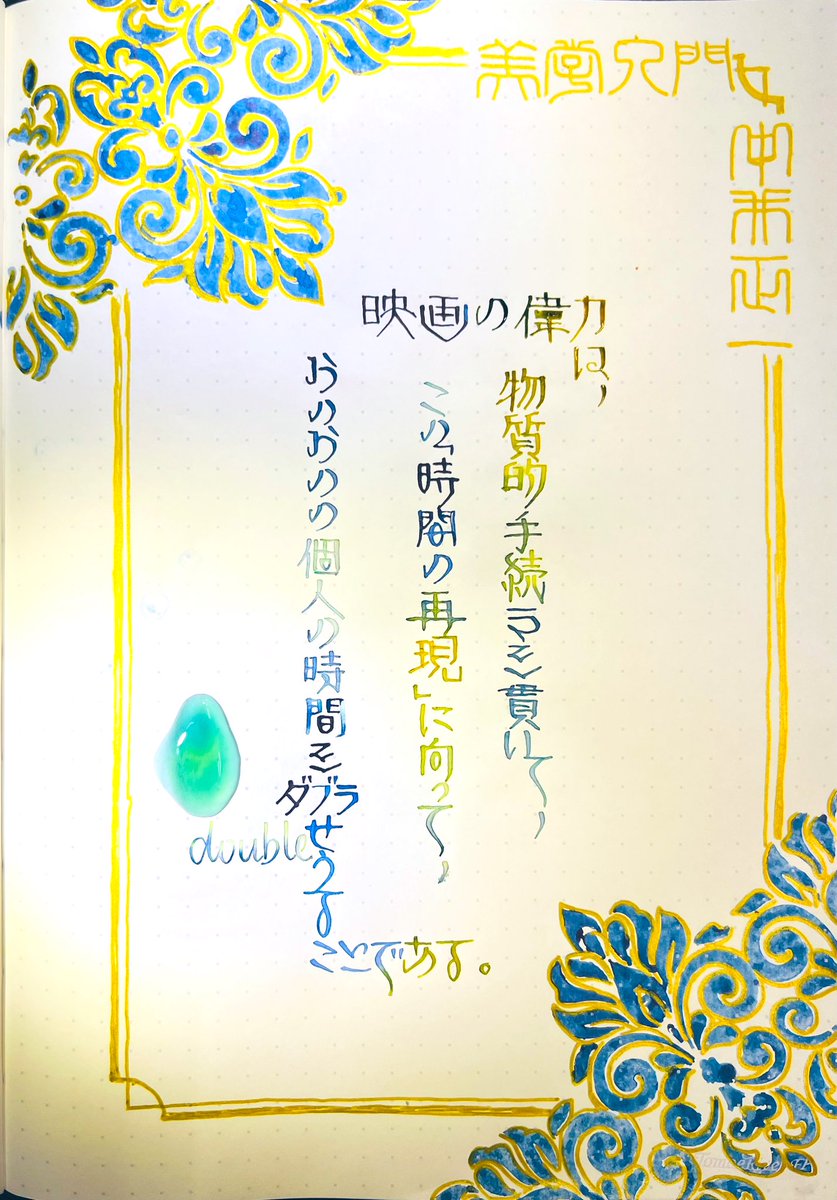 美学入門
中井正一
映画の偉力は、
物質的手続きを貫いて、
この「時間の再現」に向って、
おのおのの個人の時間をダブらせうる
double
ことである。
Tomoe River FP